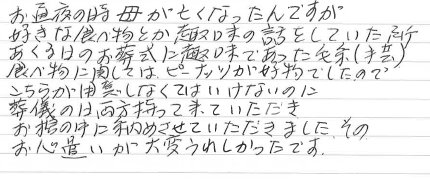 お通夜の時 母が亡くなったんですが
好きな食べ物とか趣味の話をしていた所
あくる日のお葬式に趣味であった毛糸(手芸)
食べ物に関しては、ピーナッツが好物でしたので
こちらが用意しなくてはいけないのに
葬儀のは両方持って来ていただき
お棺の中に納めさせていただきました。その
お心遣いが大変うれしかったです。